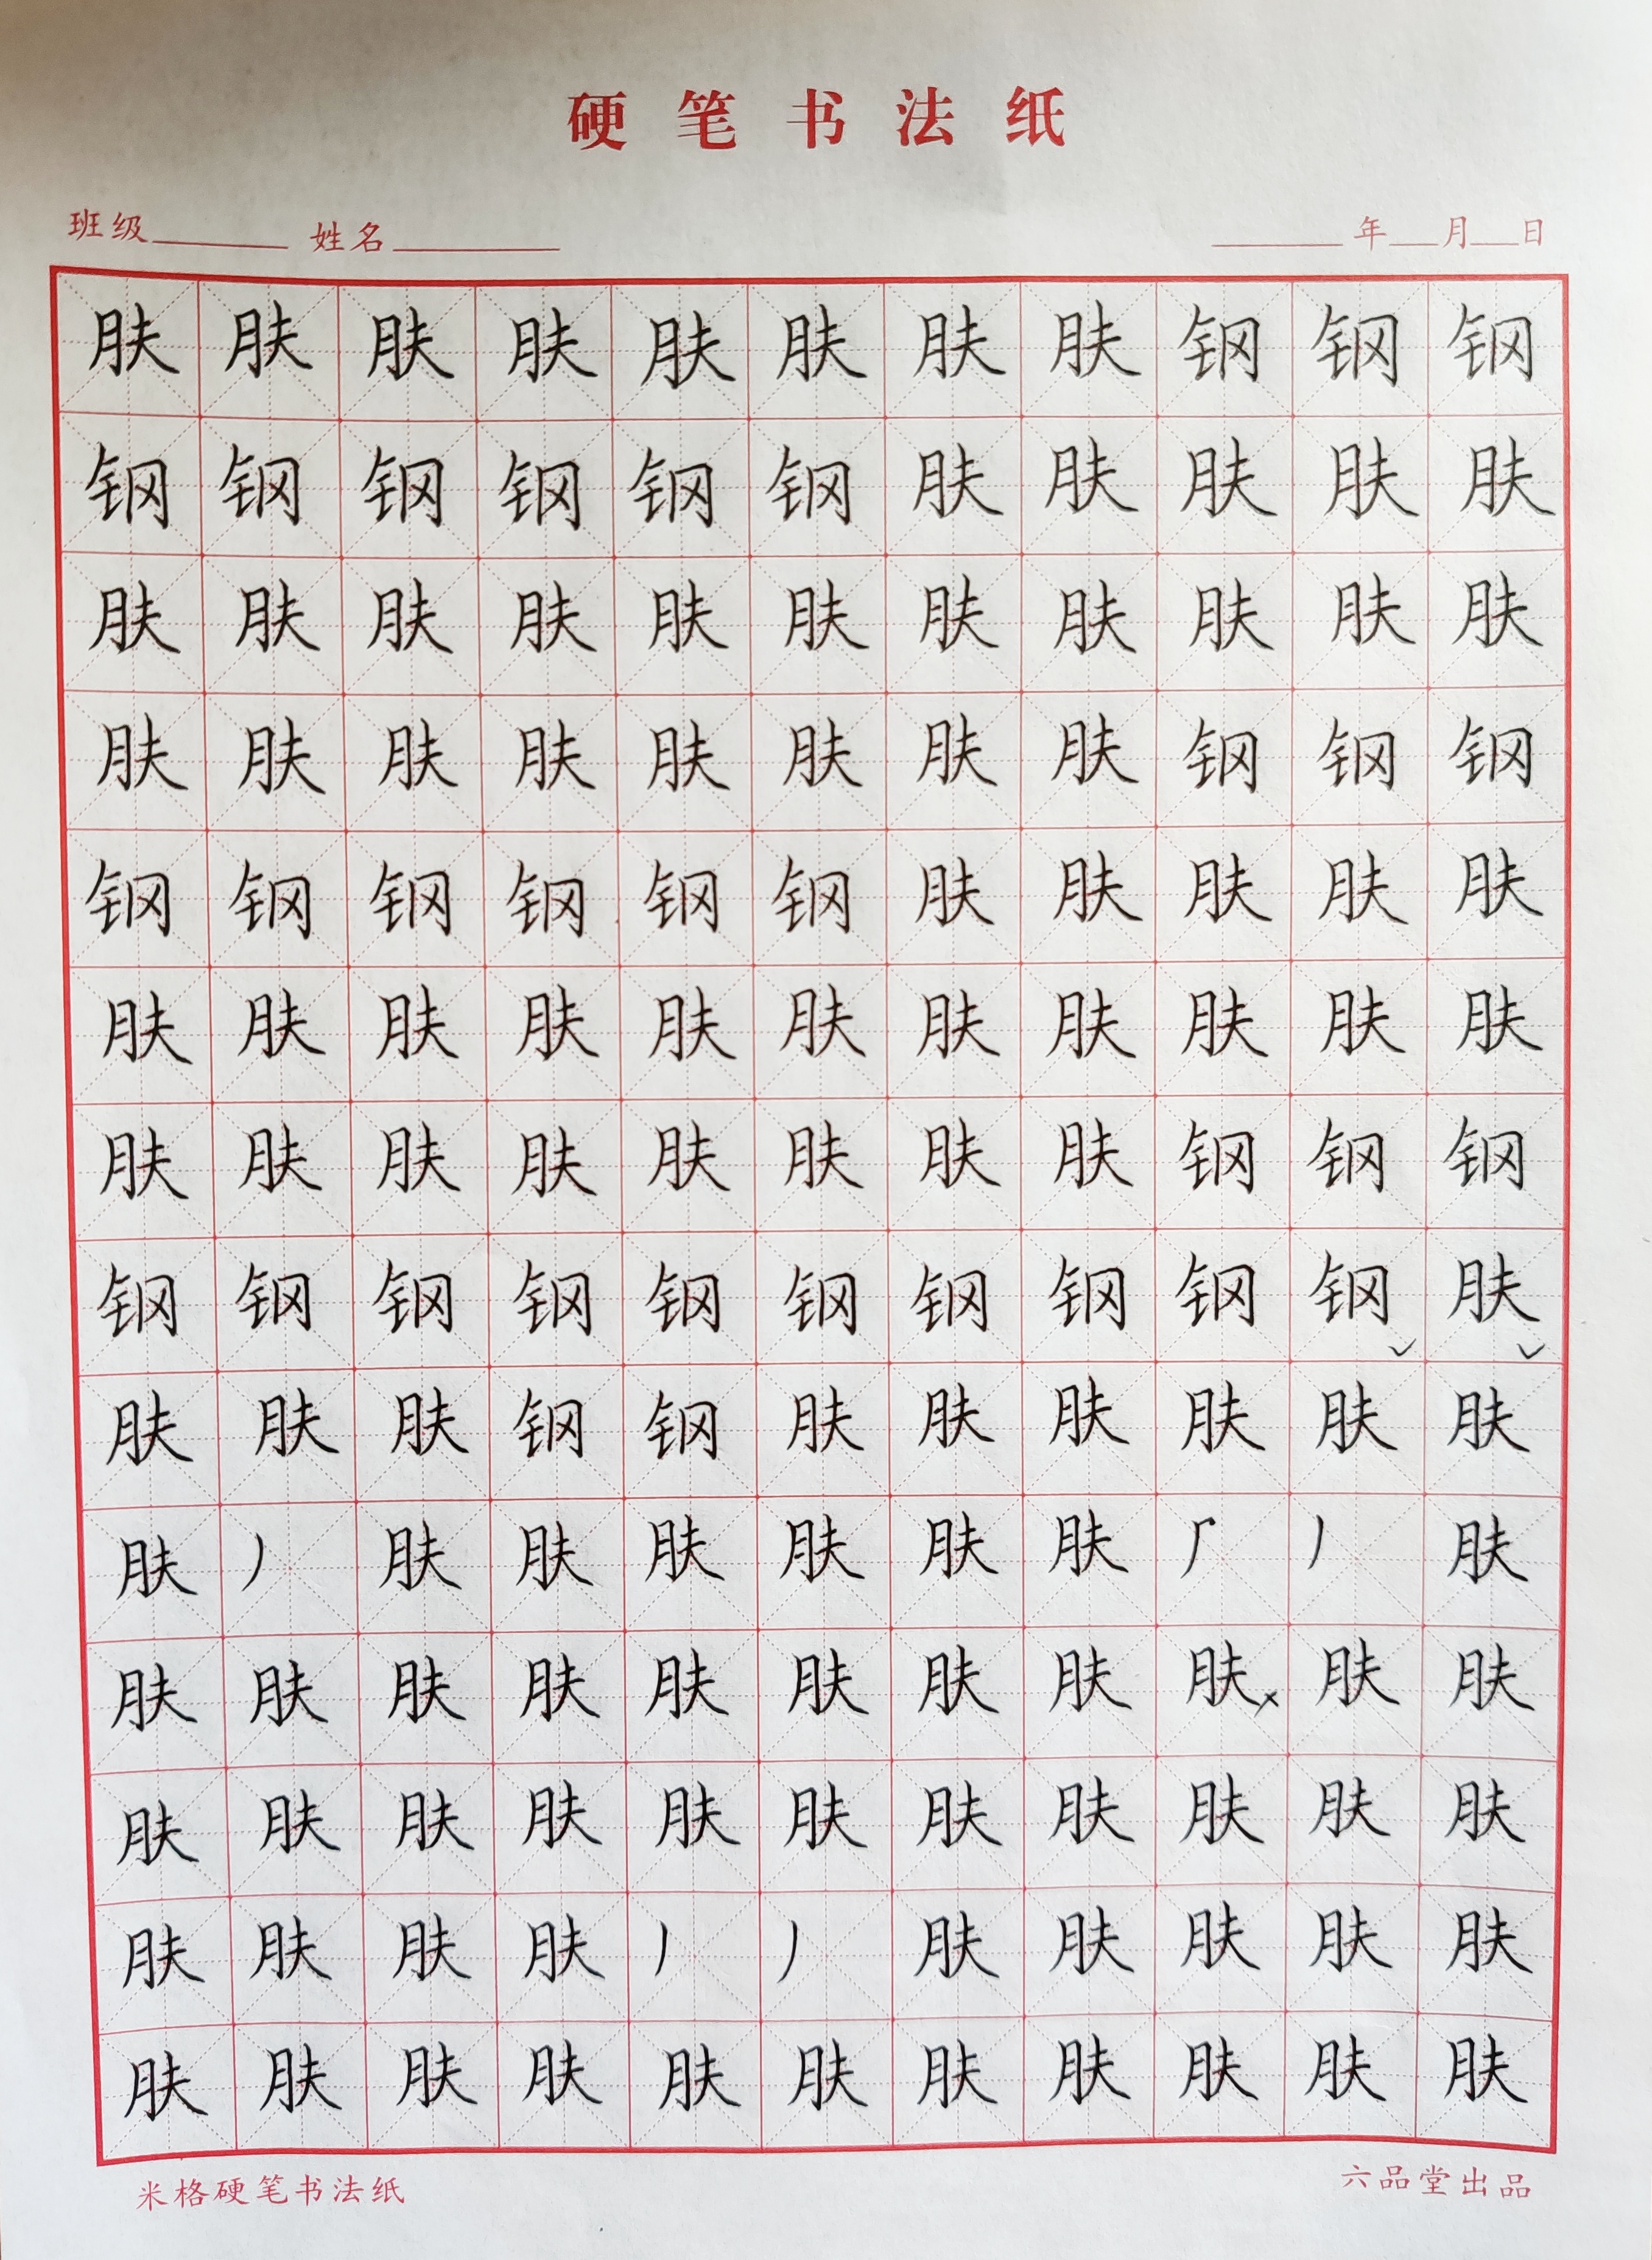 硬笔书法纸
班级 姓名 年 月 日
肤肤肤肤肤肤肤肤钢钢钢
钢钢钢钢钢钢肤肤肤肤肤
肤肤肤肤肤肤肤肤肤肤肤
肤肤肤肤肤肤肤肤钢钢钢
钢钢钢钢钢钢肤肤肤肤肤
肤肤肤肤肤肤肤肤肤肤肤
肤肤肤肤肤肤肤肤钢钢钢
钢钢钢钢钢钢钢钢钢钢肤
肤肤肤钢钢肤肤肤肤肤肤
肤丿肤肤肤肤肤肤丿肤
肤肤肤肤肤肤肤肤肤肤肤
肤肤肤肤肤肤肤肤肤肤肤
肤肤肤肤丿丿肤肤肤肤肤
肤肤肤肤肤肤肤肤肤肤肤
米格硬笔书法纸 六品堂出品